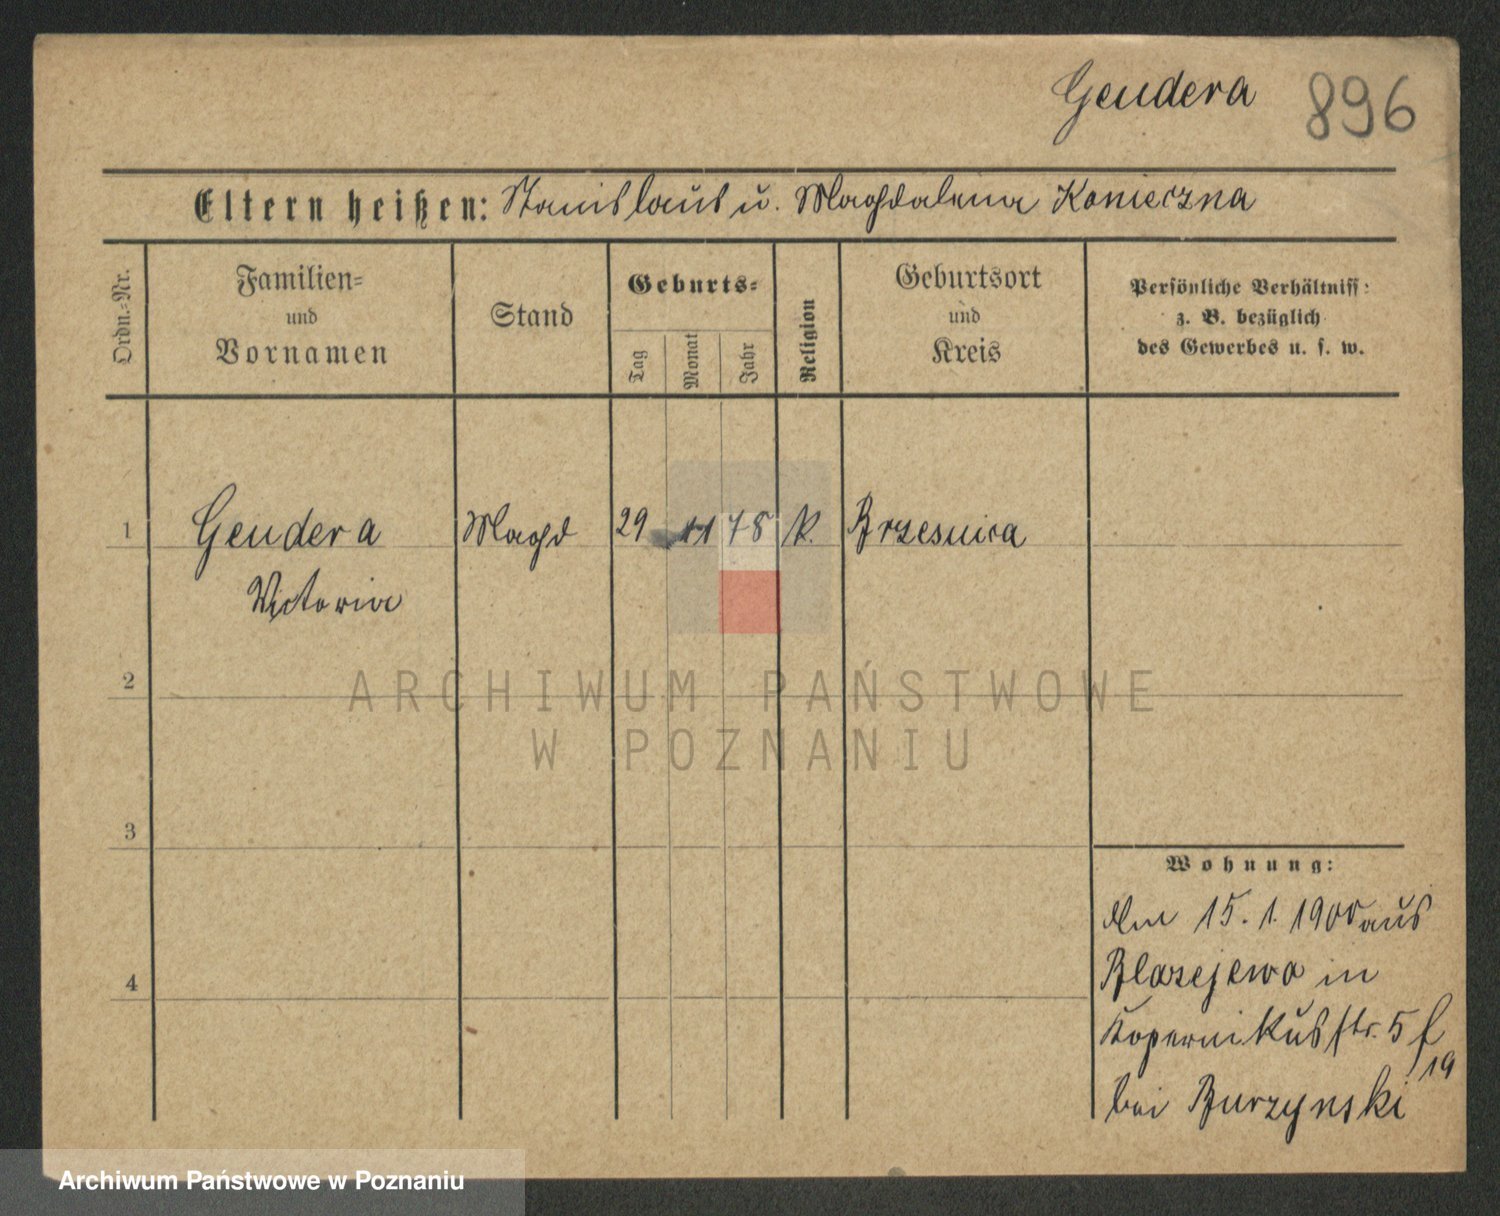 Gendera 896
Eltern heißen: Stanislaus u. Magdalena Konieczna
Ordn.-Nr.
Familien-
und
Vornamen
Stand
Geburts-
Tag
Monat
Jahr
Religion
Geburtsort
und
Kreis
Persönliche Verhältniss:
z. B. bezüglich
des Gewerbes u. s. w.
1 Gendera Magd 29 11 78 k. Brzesnica
Victoria
2
ARCHIWUM PAŃSTWOWE
W POZNANIU
3
Wohnung:
Am 15. 1. 1900 aus
4
Blazejewo in
Kopernikusstr. 5 f
19
bei Burzynski
Archiwum Państwowe w Poznaniu